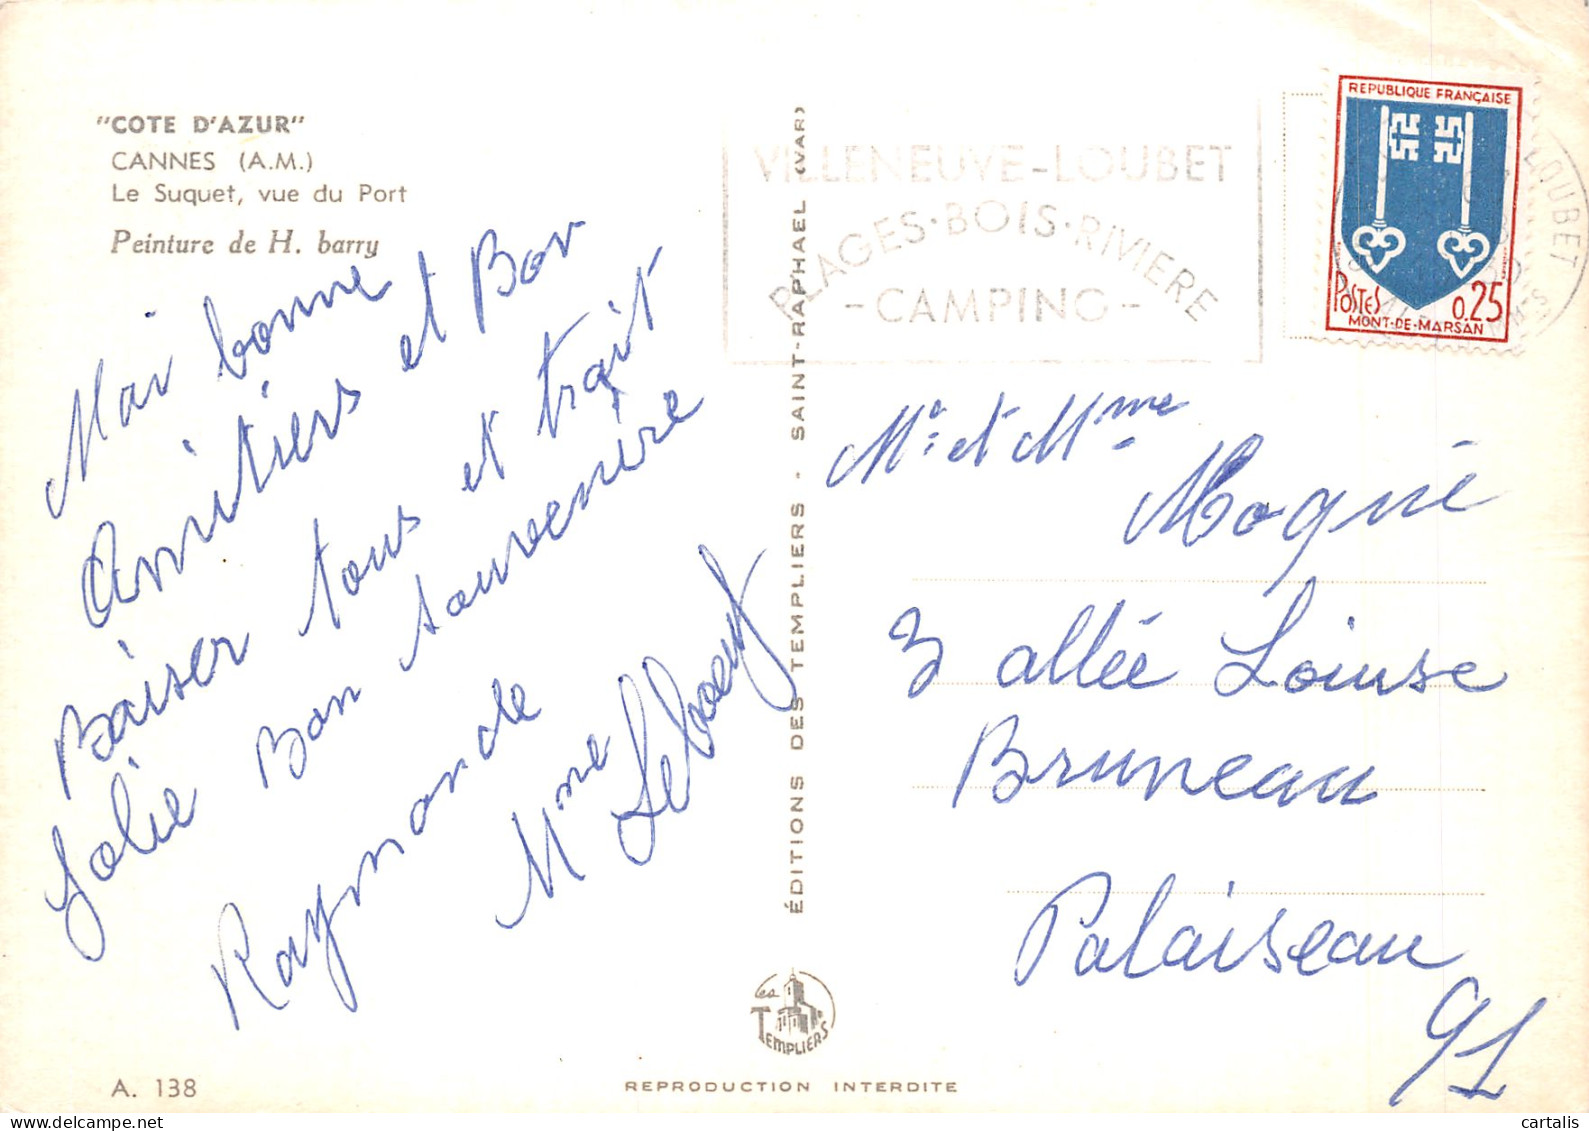 "COTE D'AZUR"
CANNES (A.M.)
Le Suquet, vue du Port
Peinture de H. barry
Moi bonne
Amitiers et Bon
Baiser tous et trait
Jolie Bon souvenire
Raymonde
Mme Leboeuf
ÉDITIONS DES TEMPLIERS - SAINT-RAPHAEL (VAR)
VILLENEUVE-LOUBET
PLAGES·BOIS·RIVIERE
-CAMPING-
REPUBLIQUE FRANÇAISE
POSTES 0.25
MONT-DE-MARSAN
LOUBET
Mr. et Mme
Mogné
3 allée Louise
Bruneau
Palaiseau
91
Les
TEMPLIERS
A. 138
REPRODUCTION INTERDITE
cartalis